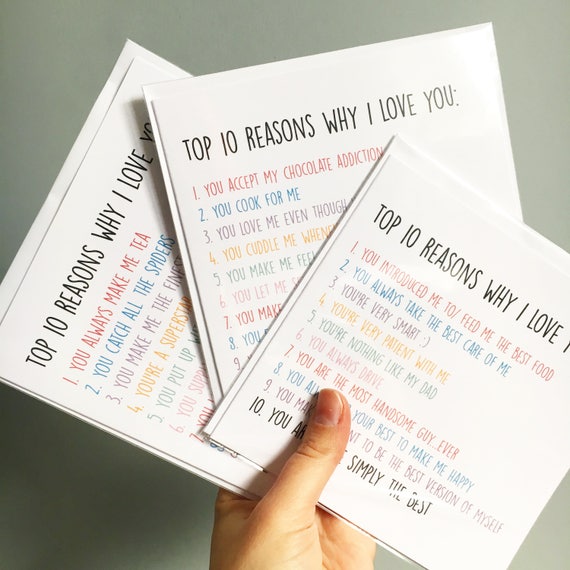 TOP 10 REASONS WHY I LOVE YO
1. YOU ALWAYS MAKE ME TEA
2. YOU CATCH ALL THE SPIDERS
3. YOU MAKE ME THE FINEST
4. YOU'RE A SUPERSTAR
5. YOU PUT UP
6. YOU
7.
TOP 10 REASONS WHY I LOVE YOU:
1. YOU ACCEPT MY CHOCOLATE ADDICTION
2. YOU COOK FOR ME
3. YOU LOVE ME EVEN THOUGH
4. YOU CUDDLE ME WHENE
5. YOU MAKE ME FEEL
6. YOU LET ME
7. YOU MAK
8. YOU
9.
TOP 10 REASONS WHY I LOVE Y
1. YOU INTRODUCED ME TO/ FEED ME THE BEST FOOD
2. YOU ALWAYS TAKE THE BEST CARE OF ME
3. YOU'RE VERY SMART :)
4. YOU'RE VERY PATIENT WITH ME
5. YOU'RE NOTHING LIKE MY DAD
6. YOU ALWAYS DRIVE
7. YOU ARE THE MOST HANDSOME GUY...EVER
8. YOU AL YOUR BEST TO MAKE ME HAPPY
9. YOU MA NT TO BE THE BEST VERSION OF MYSELF
10. YOU AR SIMPLY THE BEST